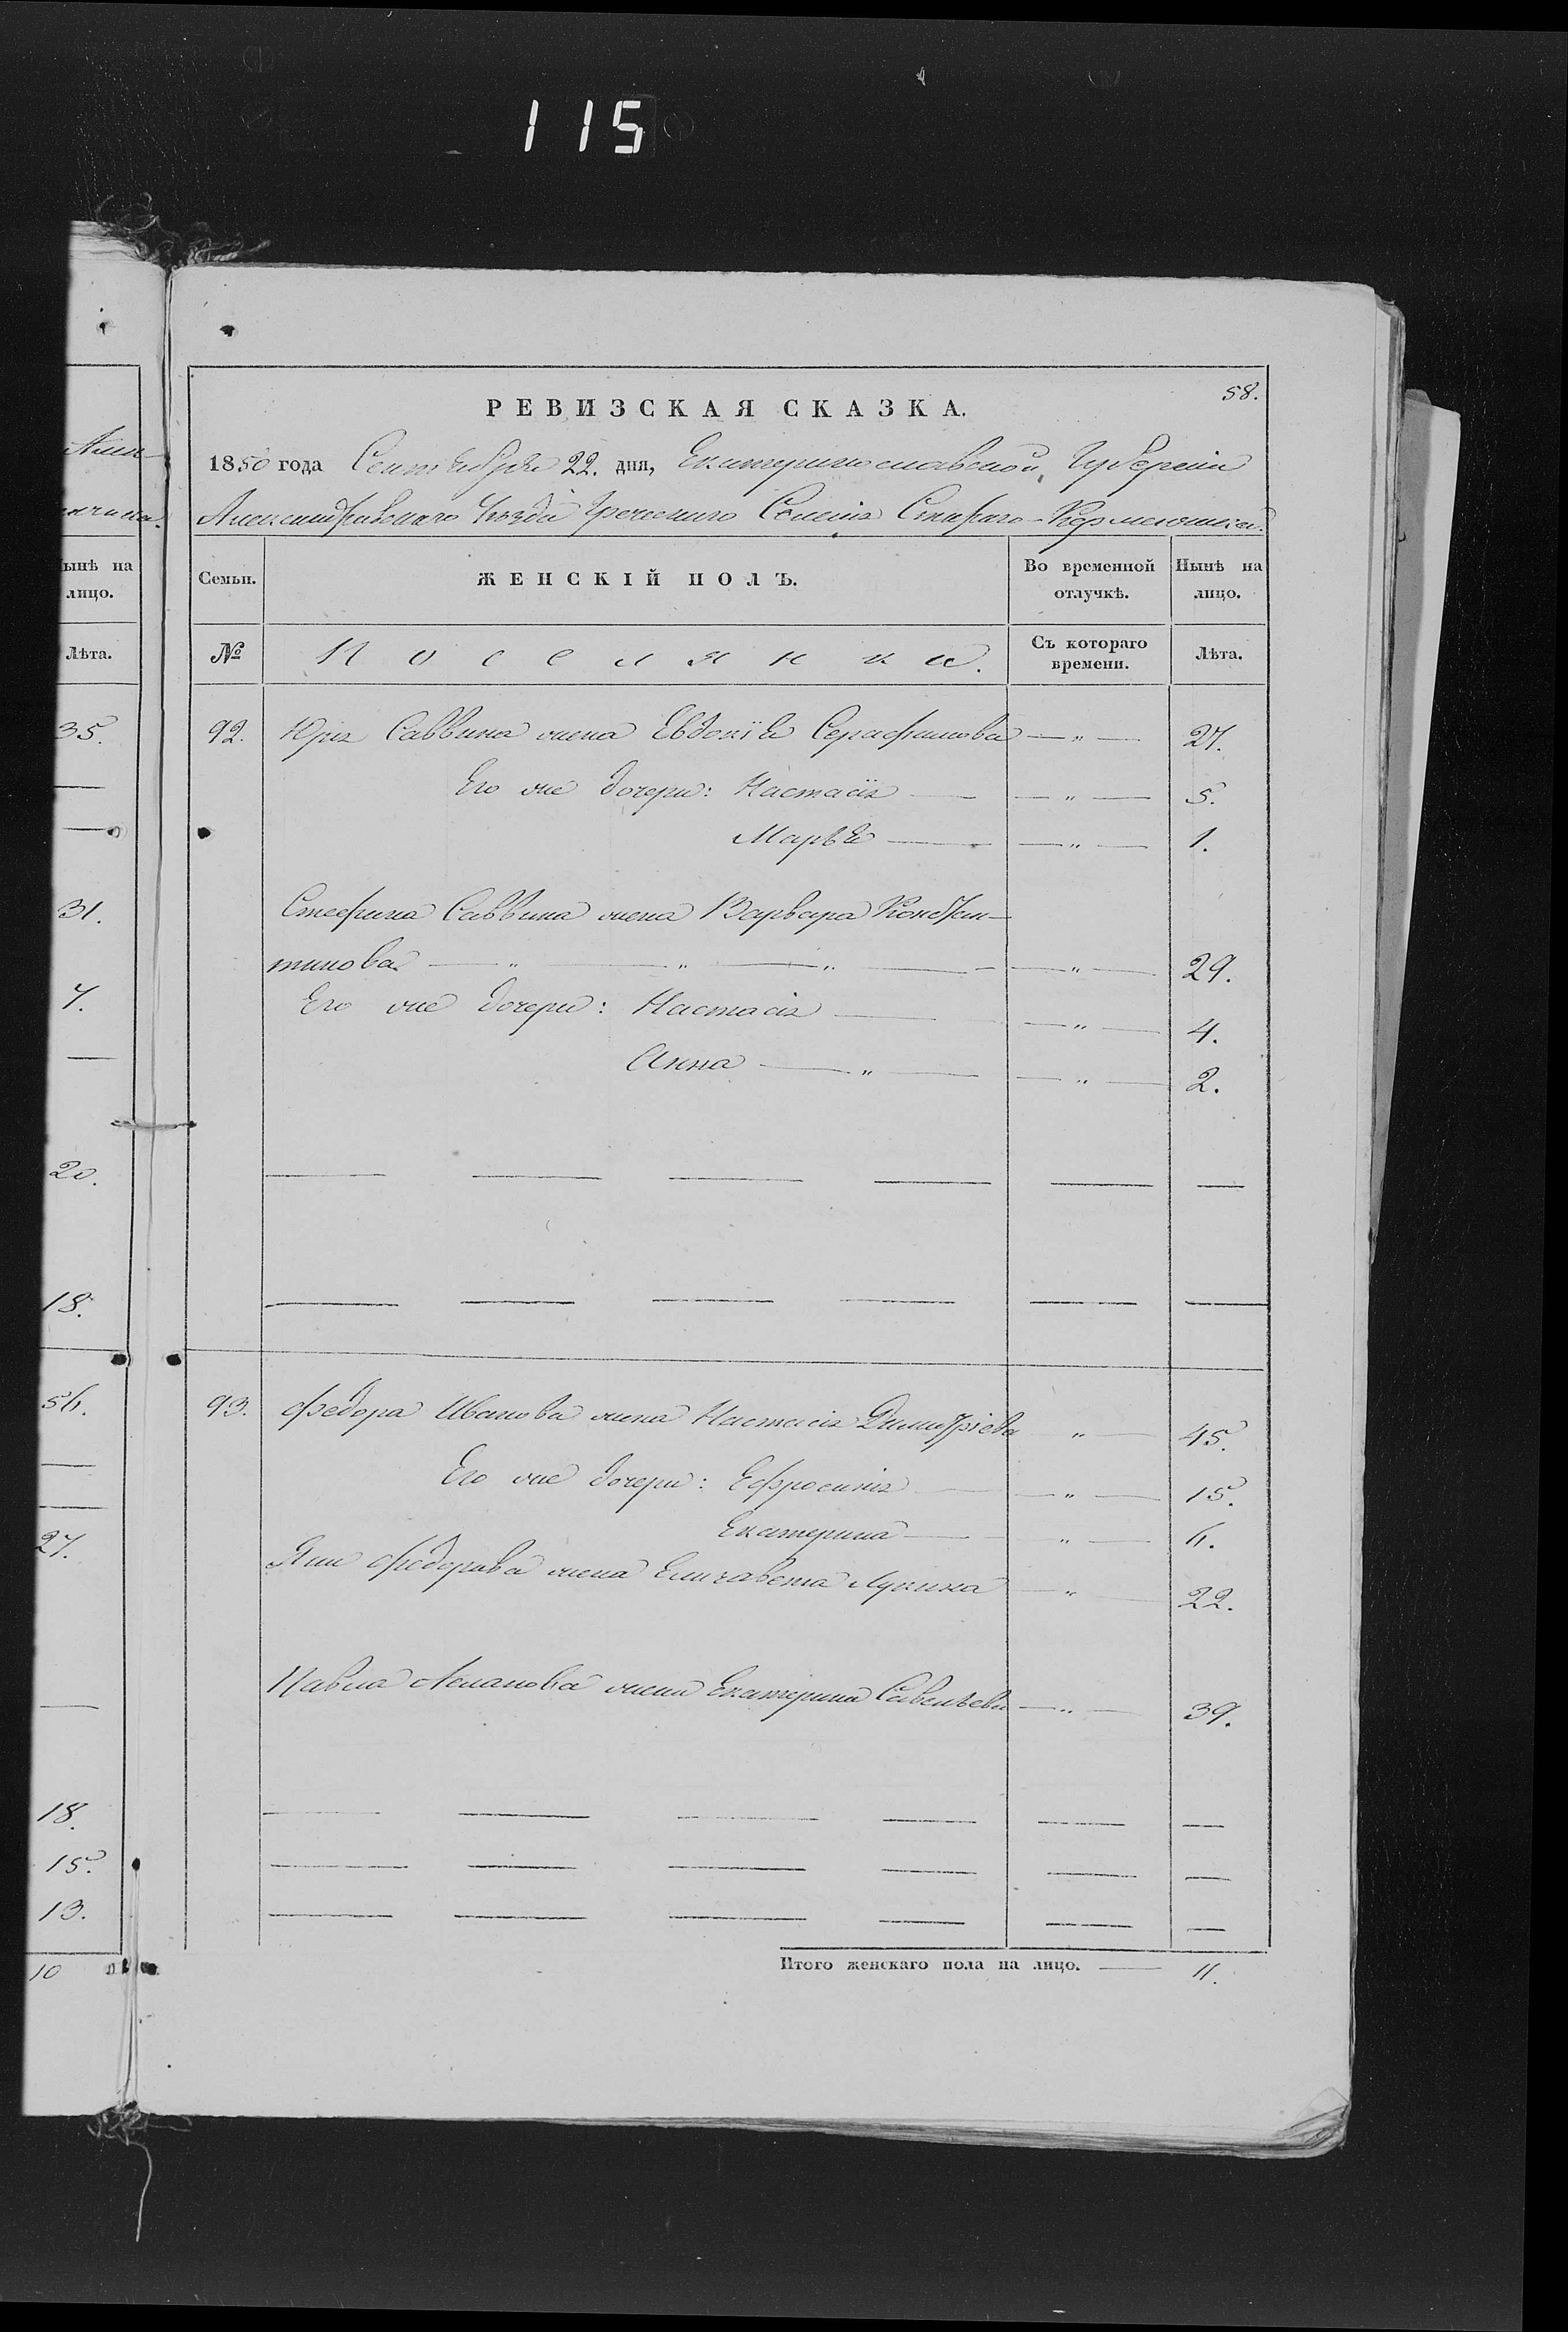 115
58.
РЕВИЗСКАЯ СКАЗКА.
1850 года Сентября 22. дня, Екатеринославской Губерніи
Александровскаго Уѣзда Греческаго Селенія Стараго-Керменчика.
Семьи. ЖЕНСКІЙ ПОЛЪ. Во временной отлучкѣ. Нынѣ на лицо.
№ Поселянки. Съ котораго времени. Лѣта.
92. Юрія Саввина жена Евдокія Серафимова — „ — 27.
Его же дочери: Настасія — — „ — 5.
Марья — — „ — 1.
Стефана Саввина жена Варвара Констан-
тинова — „ — „ — „ — — „ — 29.
Его же дочери: Настасія — — „ — 4.
Анна — „ — — „ — 2.
93. Федора Иванова жена Настасія Димитріева „ — 45.
Его же дочери: Ефросинія — — „ — 15.
Екатерина — „ — 6.
Яни Федорова жена Елизавета Лукина — „ — 22.
Павла Асланова жена Екатерина Савельева — „ — 39.
Итого женскаго пола на лицо. — 11.
Нынѣ на лицо.
Лѣта.
35.
31.
7.
20.
18.
56.
27.
18.
15.
13.
10